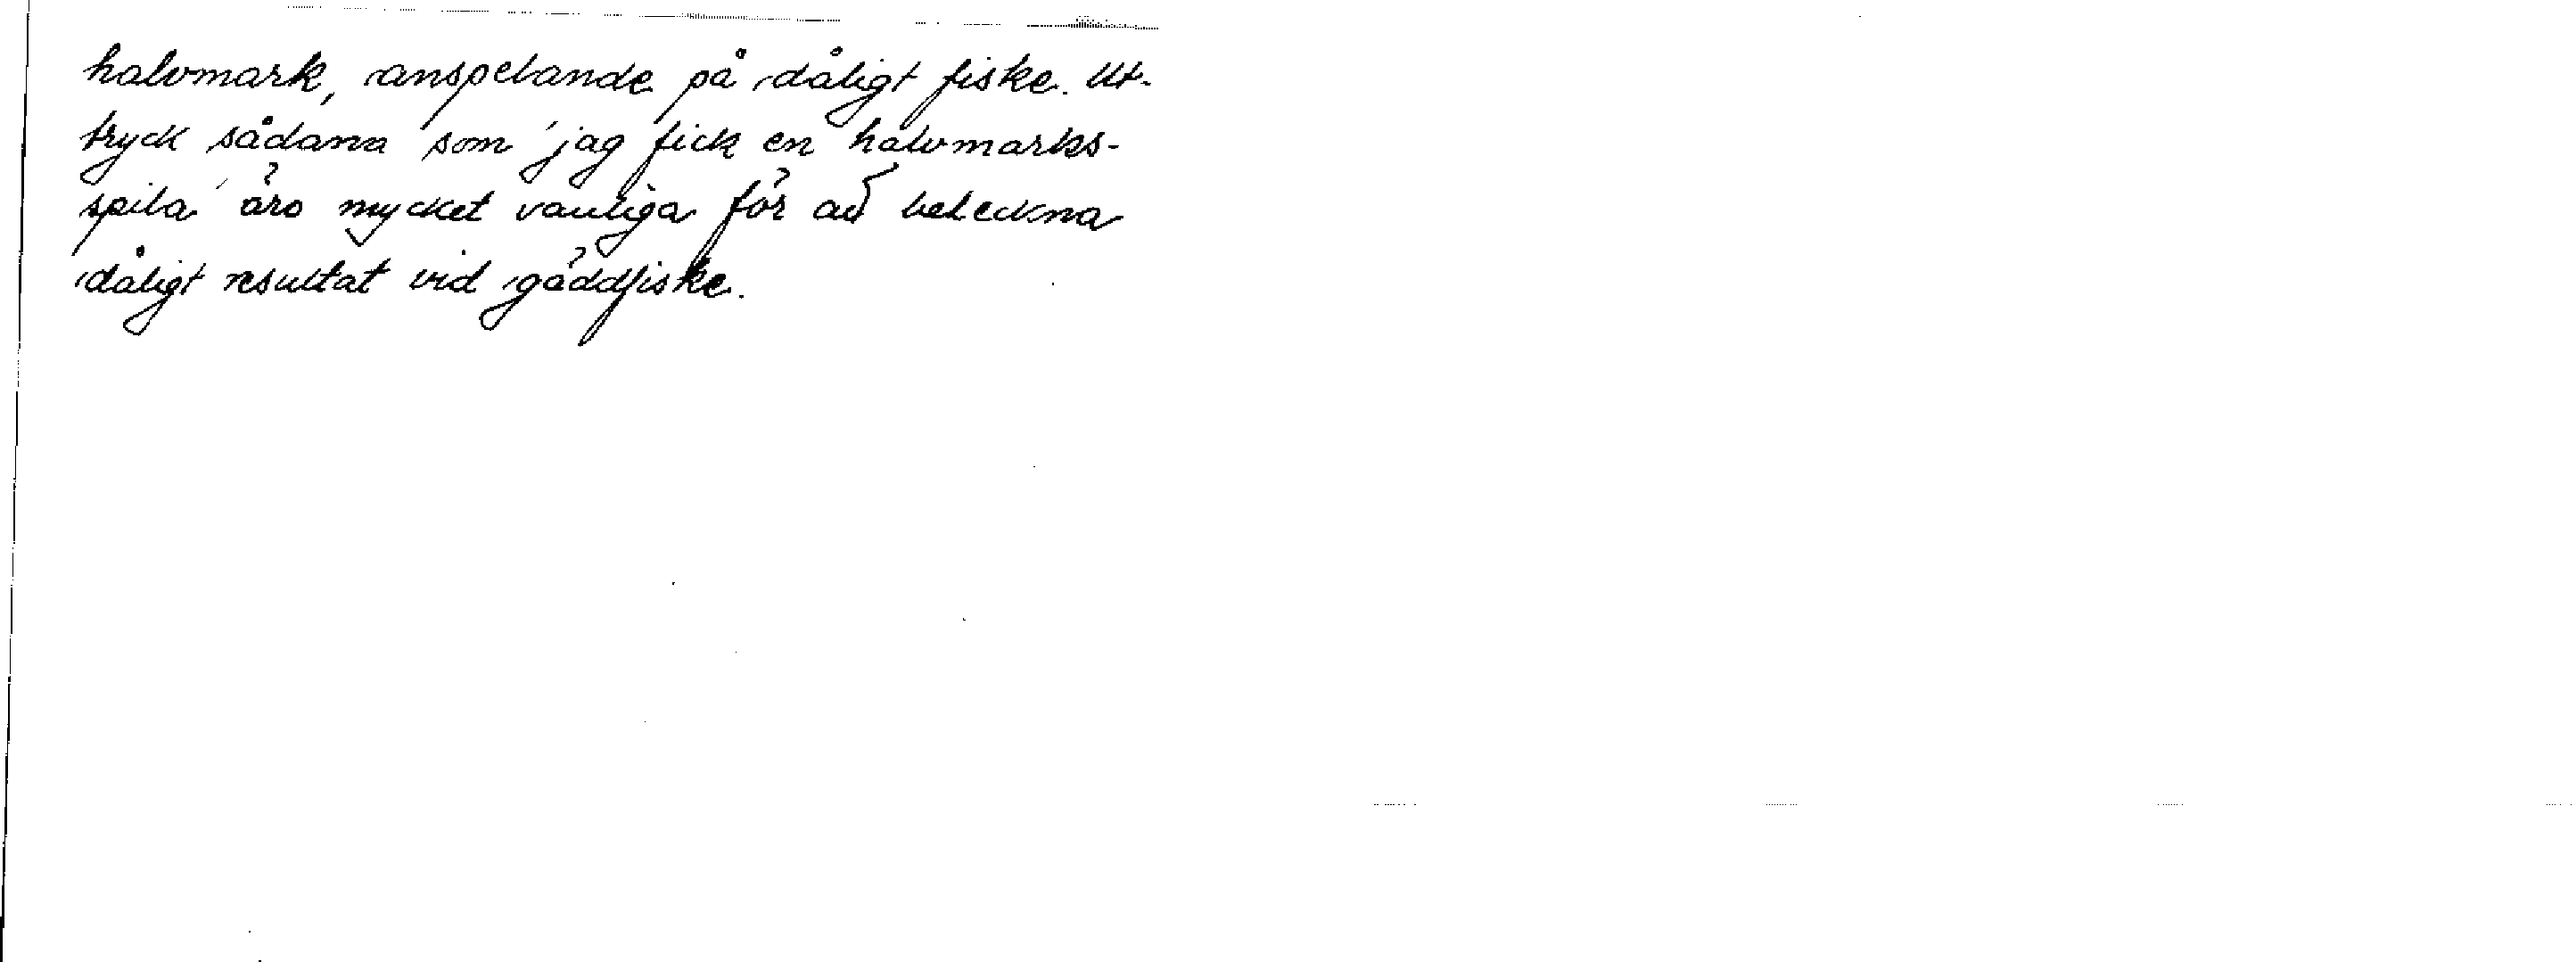 halvmark, anspelande på dåligt fiske. Ut-
tryck sådana som 'jag fick en halvmarks-
spila' äro mycket vanliga för att beteckna
dåligt resultat vid gäddfiske.